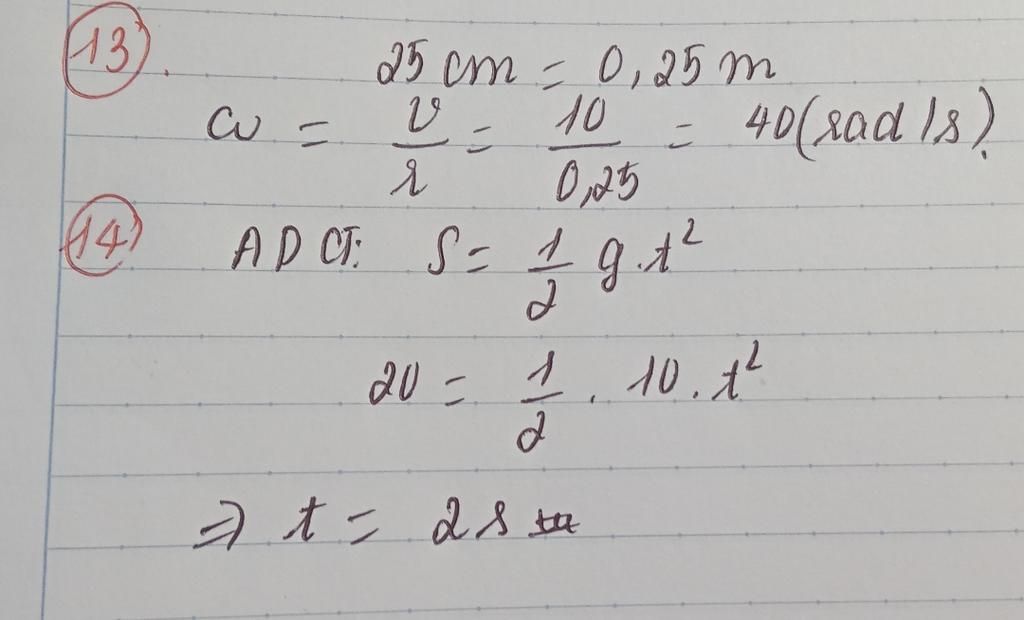 13. 25 cm = 0,25 m
ω = v/r = 10/0,25 = 40 (rad/s).
14 ADCT: S = 1/2 g.t²
20 = 1/2 . 10 . t²
⇒ t = 2s